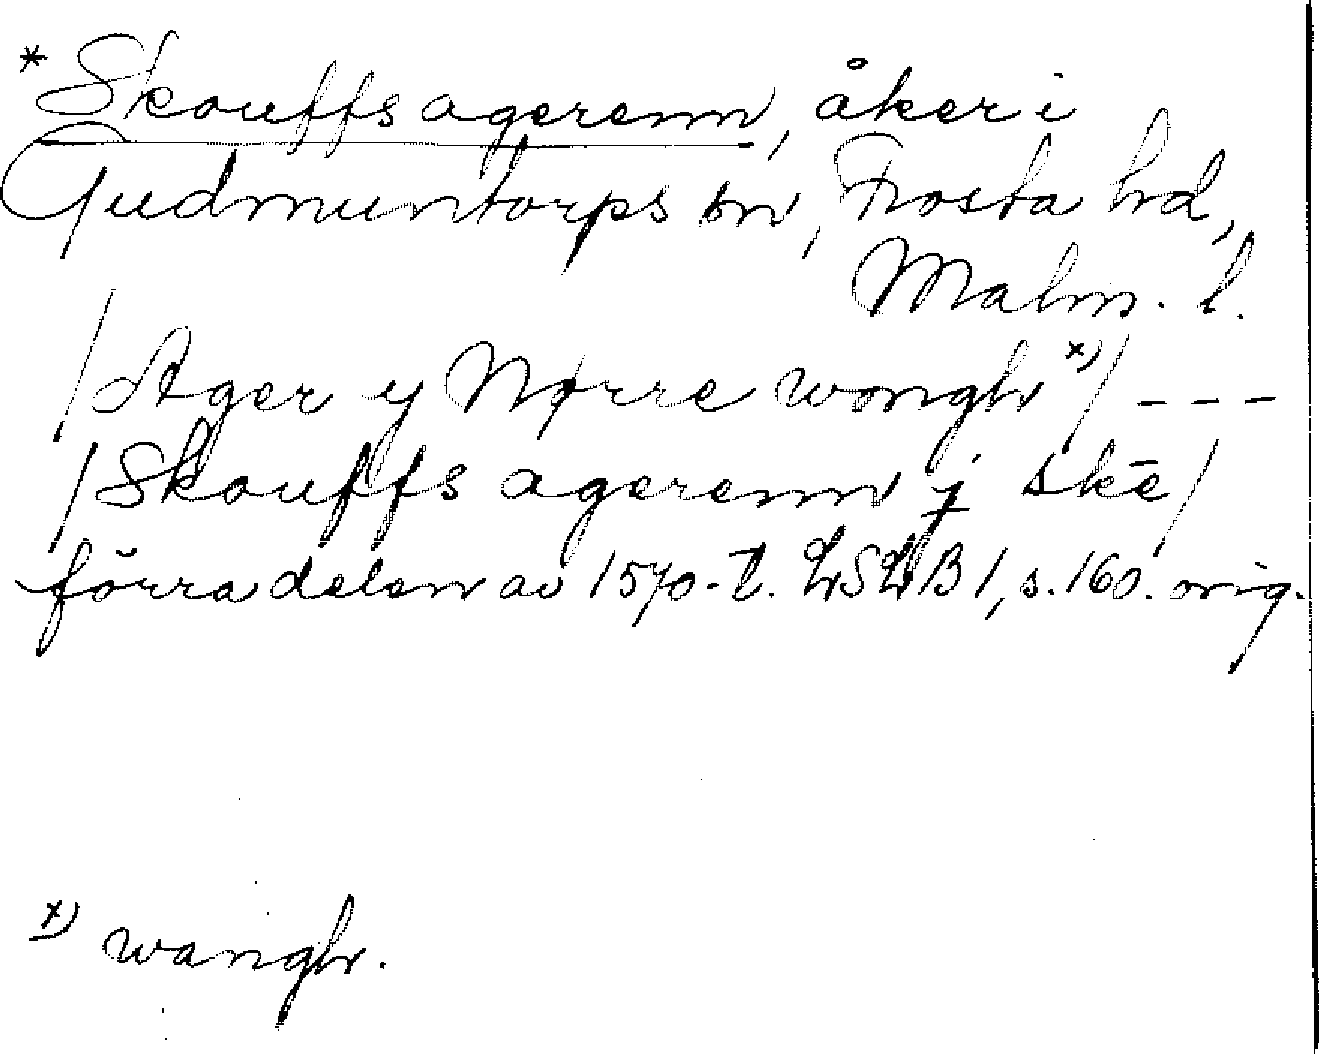 * Skouffs agerenn, åker i
Gudmuntorps sn, Frosta hd,
Malm. l.
/Ager y Nørre wongh x)/ - - -
/Skouffs agerenn j skē/
förra delen av 1570-t. LSLB 1, s. 160. orig.
x) wangh.